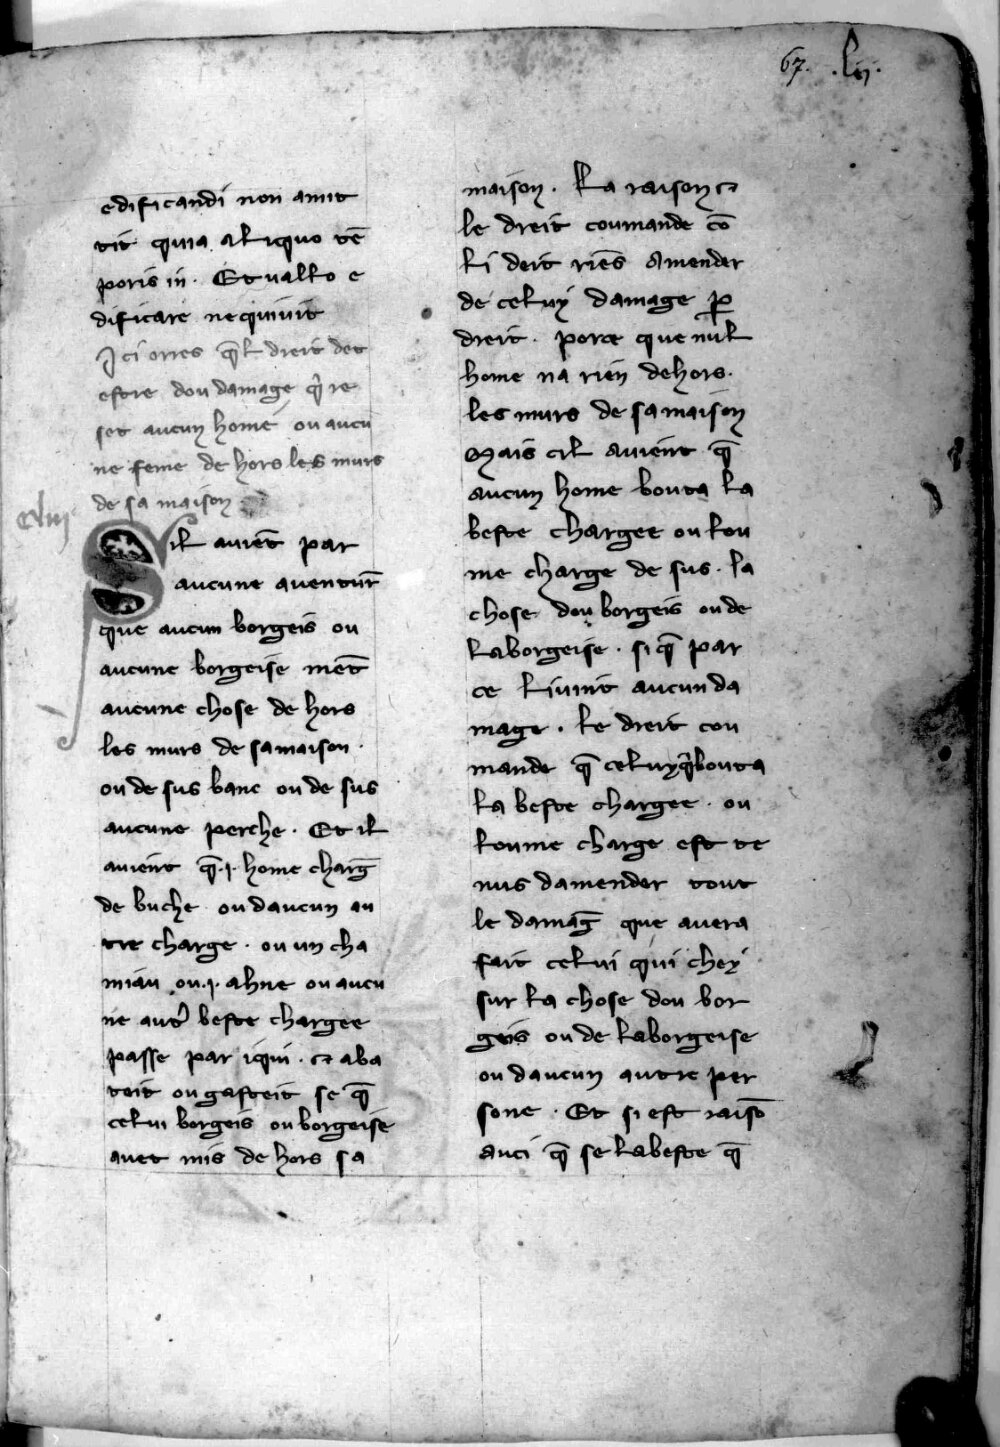 67. .lxij.
edificandi non amit
tit quia aliquo tē
poris in. Et uallo e
dificare nequiuit
Ici orres q̄l dreit det
estre dou damage q̇ re
set aucun home ou aucu
ne feme de hors les murs
de sa maison
Sil auiēt par
aucune auentur̄
que aucun borgeis ou
aucune borgeise met̄
aucune chose de hors
les murs de samaison.
ou de sus banc ou de sus
aucune perche. Et il
auient q̄ .j. home charḡ
de buche ou daucun au
tre charge. ou un cha
miau ou .j. ahne ou aucu
ne autˀ beste chargee
passe par iqui. ⁊ aba
teit ou gasteit se q̄
celui borgeis ou borgeise
auet mis de hors sa
maison. La raison ⁊
le dreit coumande cō
li deit riēs amender
de celuy damage ꝑ
dreit. porce que nul
home na rien dehors.
les murs de samaison
Mais cil auient q̄
aucun home bouta la
beste chargee ou lou
me charge de sus. la
chose dou borgeis ou de
laborgeise. si q̄ par
ce li uint aucun da
mage. le dreit cou
mande q̄ celuy q̇ bouta
la beste chargee. ou
loume charge est te
nus damender tout
le damaḡ que auera
fait celui qui chey
sur la chose dou bor
geis ou de laborgeise
ou daucun autre per
sone. Et si est raisō
auci q̄ se labeste q̄